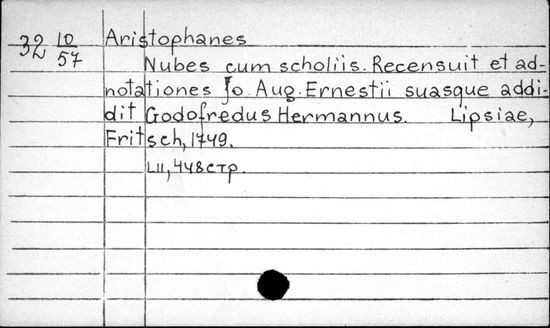 32 10/57 Aristophanes
Nubes cum scholiis. Recensuit et ad-
notationes Jo. Aug. Ernestii suasque addi-
dit Godofredus Hermannus. Lipsiae,
Fritsch, 1749.
LII, 448 стр.